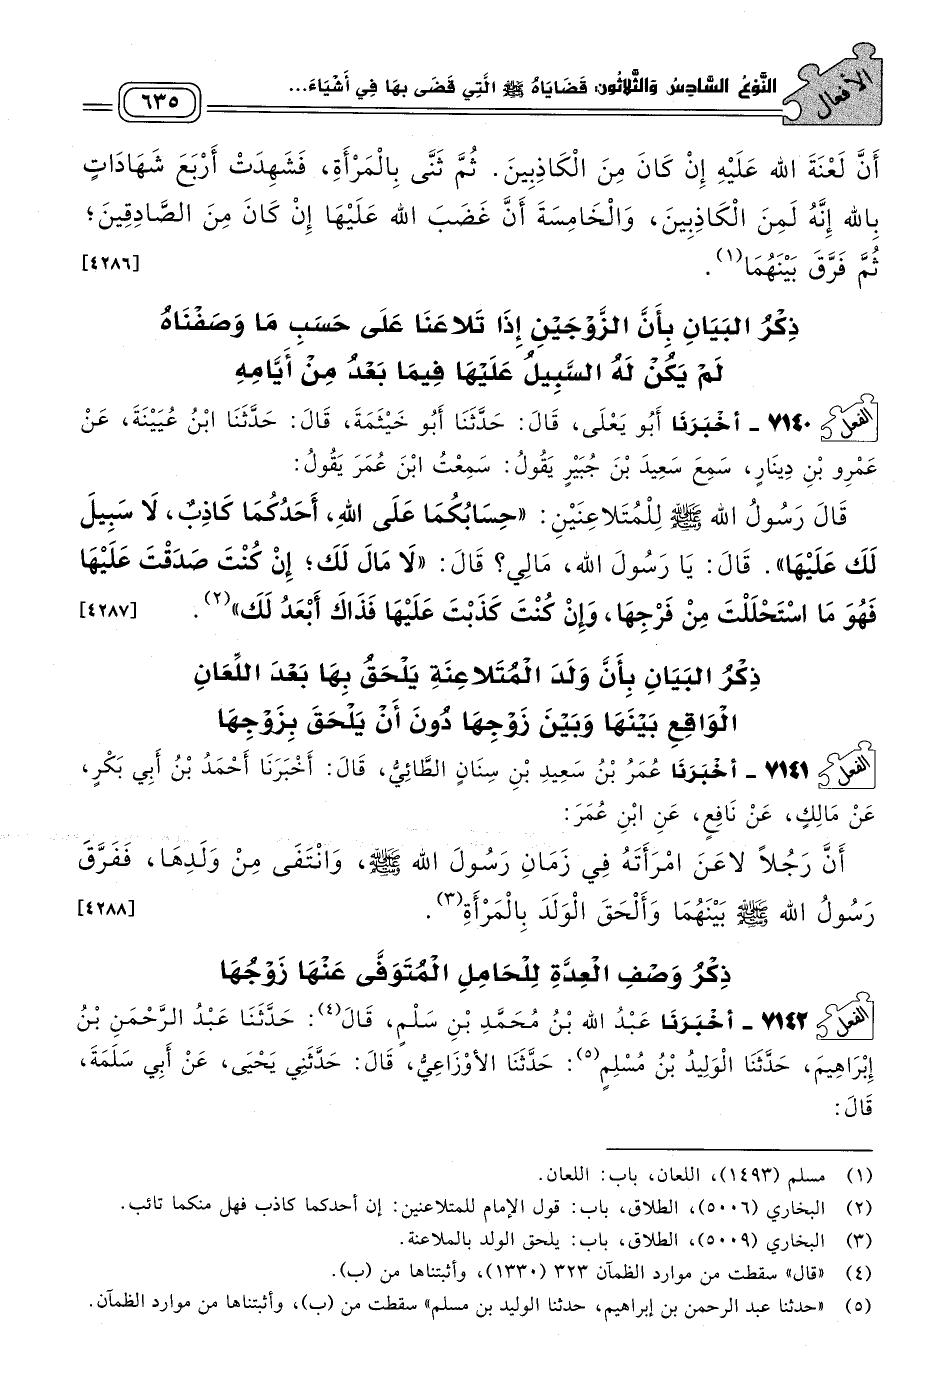 الأفعال
النَّوْعُ السَّادِسُ وَالثَّلاثُون: قَضَايَاهُ ﷺ الَّتِي قَضَى بِهَا فِي أَشْيَاءَ...
٦٣٥
أَنَّ لَعْنَةَ الله عَلَيْهِ إِنْ كَانَ مِنَ الْكَاذِبِينَ. ثُمَّ ثَنَّى بِالْمَرْأَةِ، فَشَهِدَتْ أَرْبَعَ شَهَادَاتٍ
بِالله إِنَّهُ لَمِنَ الْكَاذِبِينَ، وَالْخَامِسَةَ أَنَّ غَضَبَ الله عَلَيْهَا إِنْ كَانَ مِنَ الصَّادِقِينَ؛
ثُمَّ فَرَّقَ بَيْنَهُمَا(١). [٤٢٨٦]
ذِكْرُ البَيَانِ بِأَنَّ الزَّوْجَيْنِ إِذَا تَلاعَنَا عَلَى حَسَبِ مَا وَصَفْنَاهُ
لَمْ يَكُنْ لَهُ السَّبِيلُ عَلَيْهَا فِيمَا بَعْدُ مِنْ أَيَّامِهِ
الفعل ٧١٤٠ - أخْبَرَنَا أَبُو يَعْلَى، قَالَ: حَدَّثَنَا أَبُو خَيْثَمَةَ، قَالَ: حَدَّثَنَا ابْنُ عُيَيْنَةَ، عَنْ
عَمْرِو بْنِ دِينَارٍ، سَمِعَ سَعِيدَ بْنَ جُبَيْرٍ يَقُولُ: سَمِعْتُ ابْنَ عُمَرَ يَقُولُ:
قَالَ رَسُولُ الله ﷺ لِلْمُتَلاعِنَيْنِ: «حِسَابُكُمَا عَلَى الله، أَحَدُكُمَا كَاذِبٌ، لَا سَبِيلَ
لَكَ عَلَيْهَا». قَالَ: يَا رَسُولَ الله، مَالِي؟ قَالَ: «لَا مَالَ لَكَ؛ إِنْ كُنْتَ صَدَقْتَ عَلَيْهَا
فَهُوَ مَا اسْتَحْلَلْتَ مِنْ فَرْجِهَا، وَإِنْ كُنْتَ كَذَبْتَ عَلَيْهَا فَذَاكَ أَبْعَدُ لَكَ»(٢). [٤٢٨٧]
ذِكْرُ البَيَانِ بِأَنَّ وَلَدَ الْمُتَلاعِنَةِ يَلْحَقُ بِهَا بَعْدَ اللِّعَانِ
الْوَاقِعِ بَيْنَهَا وَبَيْنَ زَوْجِهَا دُونَ أَنْ يَلْحَقَ بِزَوْجِهَا
الفعل ٧١٤١ - أخْبَرَنَا عُمَرُ بْنُ سَعِيدِ بْنِ سِنَانٍ الطَّائِيُّ، قَالَ: أَخْبَرَنَا أَحْمَدُ بْنُ أَبِي بَكْرٍ،
عَنْ مَالِكٍ، عَنْ نَافِعٍ، عَنِ ابْنِ عُمَرَ:
أَنَّ رَجُلاً لاعَنَ امْرَأَتَهُ فِي زَمَانِ رَسُولَ الله ﷺ، وَانْتَفَى مِنْ وَلَدِهَا، فَفَرَّقَ
رَسُولُ الله ﷺ بَيْنَهُمَا وَأَلْحَقَ الْوَلَدَ بِالْمَرْأَةِ(٣). [٤٢٨٨]
ذِكْرُ وَصْفِ الْعِدَّةِ لِلْحَامِلِ الْمُتَوَفَّى عَنْهَا زَوْجُهَا
الفعل ٧١٤٢ - أخْبَرَنَا عَبْدُ الله بْنُ مُحَمَّدِ بْنِ سَلْمٍ، قَالَ(٤): حَدَّثَنَا عَبْدُ الرَّحْمَنِ بْنُ
إِبْرَاهِيمَ، حَدَّثَنَا الْوَلِيدُ بْنُ مُسْلِمٍ(٥): حَدَّثَنَا الأَوْزَاعِيُّ، قَالَ: حَدَّثَنِي يَحْيَى، عَنْ أَبِي سَلَمَةَ،
قَالَ:
(١) مسلم (١٤٩٣)، اللعان، باب: اللعان.
(٢) البخاري (٥٠٠٦)، الطلاق، باب: قول الإمام للمتلاعنين: إن أحدكما كاذب فهل منكما تائب.
(٣) البخاري (٥٠٠٩)، الطلاق، باب: يلحق الولد بالملاعنة.
(٤) «قال» سقطت من موارد الظمآن ٣٢٣ (١٣٣٠)، وأثبتناها من (ب).
(٥) «حدثنا عبد الرحمن بن إبراهيم، حدثنا الوليد بن مسلم» سقطت من (ب)، وأثبتناها من موارد الظمآن.